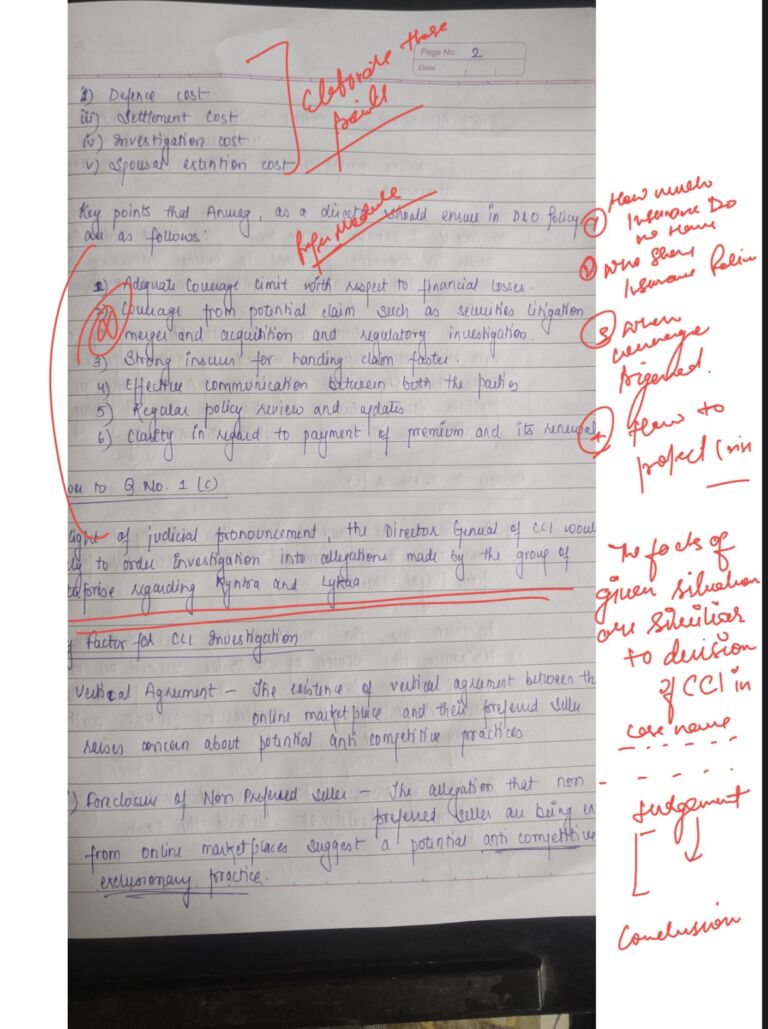 Page No. 2
Date
ii) Defence cost
iii) Settlement cost
iv) Investigation cost
v) Spousal extintion cost
Elaborate these
points
Key points that Anurag, as a director should ensure in D&O Policy
are as follows:
Refer Module
1) Adequate Coverage limit with respect to financial losses.
2) Coverage from potential claim such as securities litigation
merger and acquisition and regulatory investigation.
3) Strong insurer for handing claim faster.
4) Effective communication between both the parties
5) Regular policy review and updates
6) Clarity in regard to payment of premium and its renewal
1 How much
Insurance Do
we Have
2 Who Share
Insurance Policy
3 When
coverage
trigerred.
4 How to
to Q No. 1 (c)
light of judicial pronouncement, the Director General of CCI would
to order investigation into allegations made by the group of
regarding Kyntra and Lykaa.
Factor for CCI Investigation
Vertical Agreement - The existence of vertical agreement between th
online marketplace and their preferred seller
raises concern about potential anti competitive practices
) Foreclosure of Non Preferred seller - The allegation that non
preferred seller are being ex
from online marketplaces suggest a potential anti competitive
exclusionary practice.
The facts of
given situation
are similar
to decision
of CCI in
case name
Judgement
Conclusion